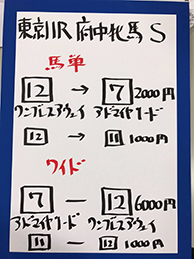 東京11R 府中牝馬S
馬単
12 → 7 2000円
ワンブレスアウェイ アドマイヤリード
12 → 11 1000円
ワイド
7 — 12 6000円
アドマイヤリード ワンブレスアウェイ
11 — 12 1000円